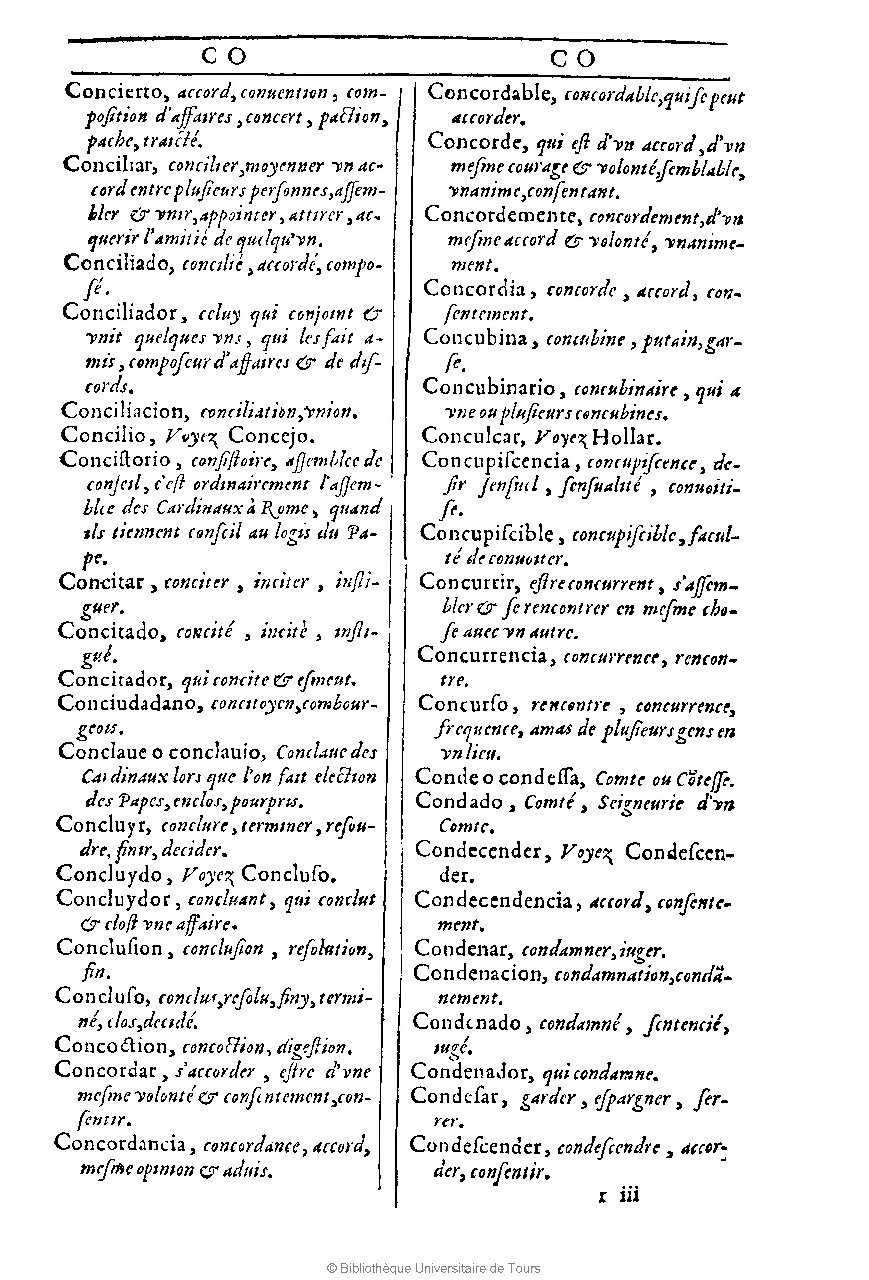 C O
Concierto, accord, conuention, com-
poſition d'affaires, concert, paction,
pache, traicté.
Conciliar, concilier, moyenner vn ac-
cord entre pluſieurs perſonnes, aſſem-
bler & vnir, appointer, attirer, ac-
querir l'amitié de quelqu'vn.
Conciliado, concilié, accordé, compo-
ſé.
Conciliador, celuy qui conjoint &
vnit quelques vns, qui les fait a-
mis, compoſeur d'affaires & de diſ-
cords.
Conciliacion, conciliation, vnion.
Concilio, Voyez Concejo.
Conciſtorio, conſiſtoire, aſſemblee de
conſeil, c'eſt ordinairement l'aſſem-
blee des Cardinaux à Rome, quand
ils tiennent conſeil au logis du Pa-
pe.
Concitar, conciter, inciter, inſti-
guer.
Concitado, concité, incité, inſti-
gué.
Concitador, qui concite & eſmeut.
Conciudadano, concitoyen, combour-
geois.
Conclaue o conclauio, Conclaue des
Cardinaux lors que l'on fait election
des Papes, enclos, pourpris.
Concluyr, conclure, terminer, reſou-
dre, finir, decider.
Concluydo, Voyez Concluſo.
Concluydor, concluant, qui conclut
& cloſt vne affaire.
Concluſion, concluſion, reſolution,
fin.
Concluſo, conclus, reſolu, finy, termi-
né, clos, decidé.
Concoction, concoction, digeſtion.
Concordar, s'accorder, eſtre d'vne
meſme volonté & conſentement, con-
ſentir.
Concordancia, concordance, accord,
meſme opinion & aduis.
C O
Concordable, concordable, qui ſe peut
accorder.
Concorde, qui eſt d'vn accord, d'vn
meſme courage & volonté, ſemblable,
vnanime, conſentant.
Concordemente, concordement, d'vn
meſme accord & volonté, vnanime-
ment.
Concordia, concorde, accord, con-
ſentement.
Concubina, concubine, putain, gar-
ſe.
Concubinario, concubinaire, qui a
vne ou pluſieurs concubines.
Conculcar, Voyez Hollar.
Concupiſcencia, concupiſcence, de-
ſir ſenſuel, ſenſualité, conuoiti-
ſe.
Concupiſcible, concupiſcible, facul-
té de conuoiter.
Concurrir, eſtre concurrent, s'aſſem-
bler & ſe rencontrer en meſme cho-
ſe auec vn autre.
Concurrencia, concurrence, rencon-
tre.
Concurſo, rencontre, concurrence,
frequence, amas de pluſieurs gens en
vn lieu.
Conde o condeſſa, Comte ou Cõteſſe.
Condado, Comté, Seigneurie d'vn
Comte.
Condecender, Voyez Condeſcen-
der.
Condecendencia, accord, conſente-
ment.
Condenar, condamner, iuger.
Condenacion, condamnation, condã-
nement.
Condenado, condamné, ſentencié,
iugé.
Condenador, qui condamne.
Condeſar, garder, eſpargner, ſer-
rer.
Condeſcender, condeſcendre, accor-
der, conſentir.
r iii
© Bibliothèque Universitaire de Tours